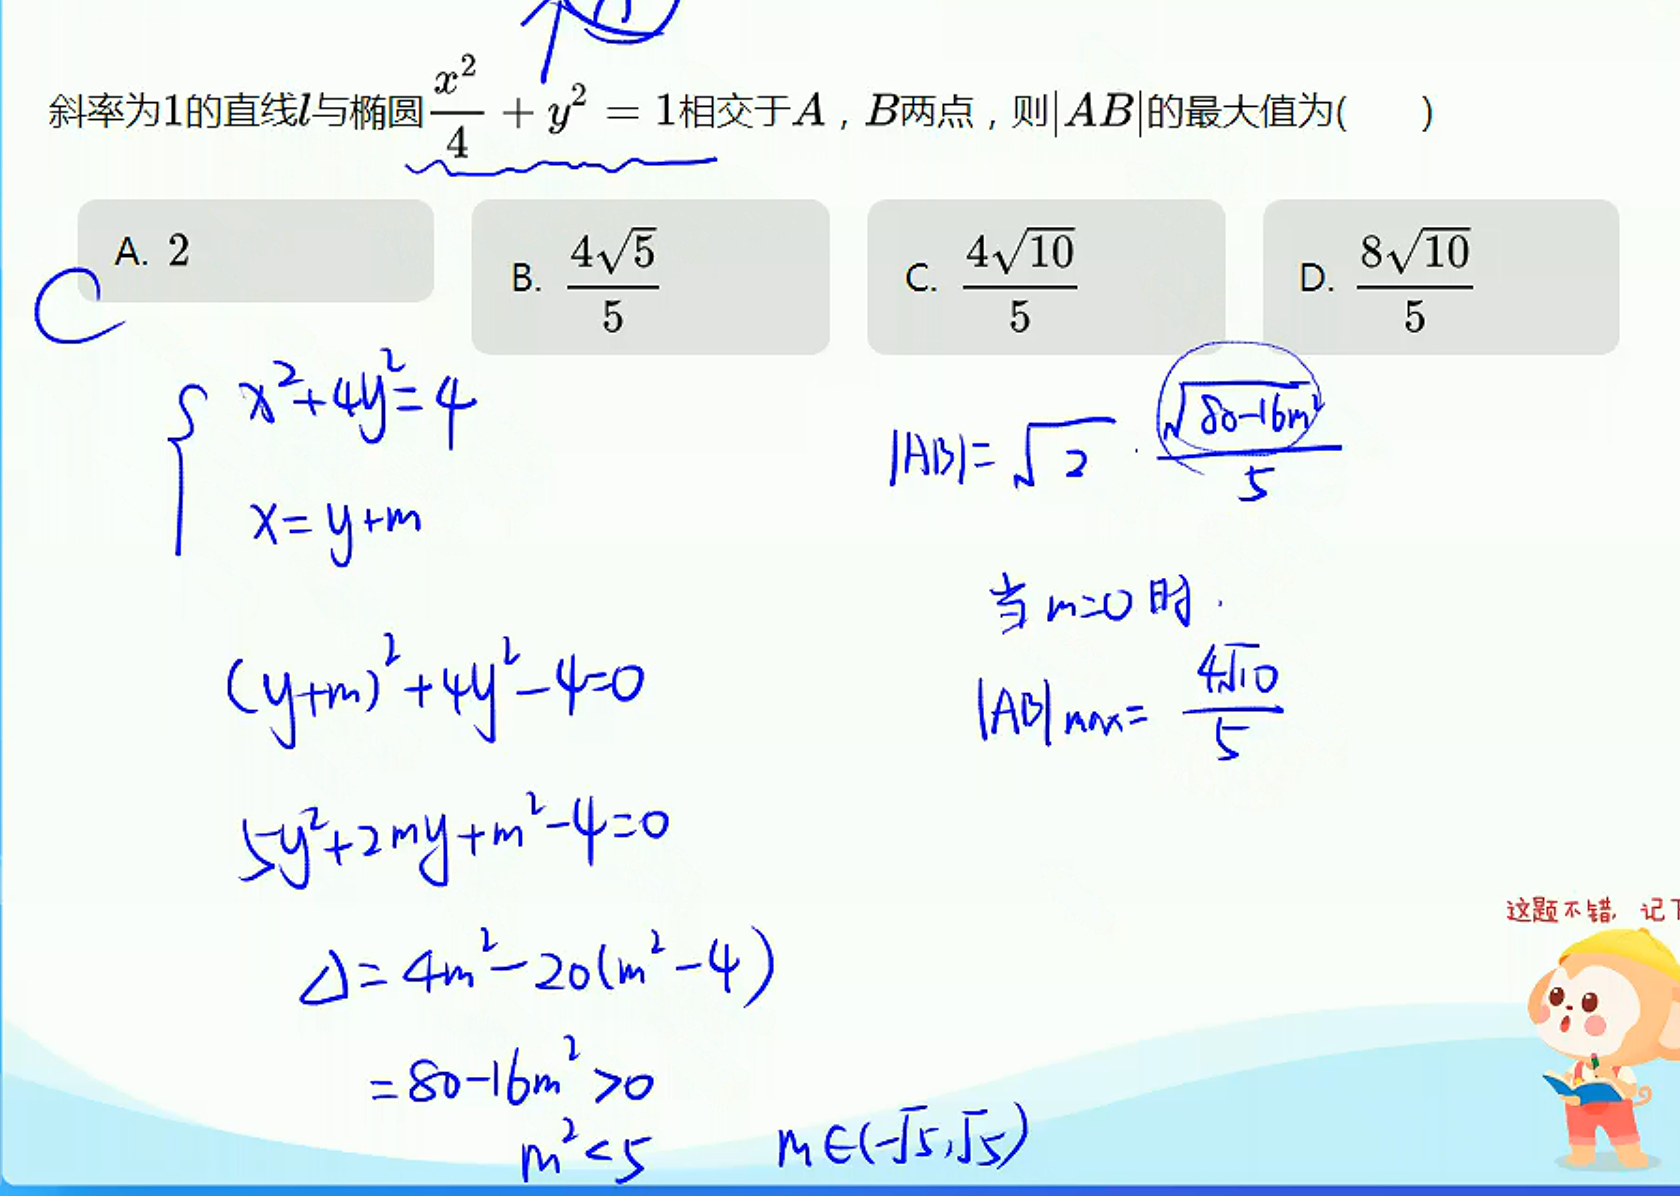 斜率为1的直线l与椭圆x²/4 + y² = 1相交于A，B两点，则|AB|的最大值为(　　)
A. 2
B. 4√5/5
C. 4√10/5
D. 8√10/5
C
{ x²+4y²=4
x=y+m
(y+m)²+4y²-4=0
5y²+2my+m²-4=0
Δ=4m²-20(m²-4)
=80-16m²>0
m²<5 m∈(-√5,√5)
|AB|=√2·√(80-16m²)/5
当m=0时.
|AB|max=4√10/5
这题不错, 记